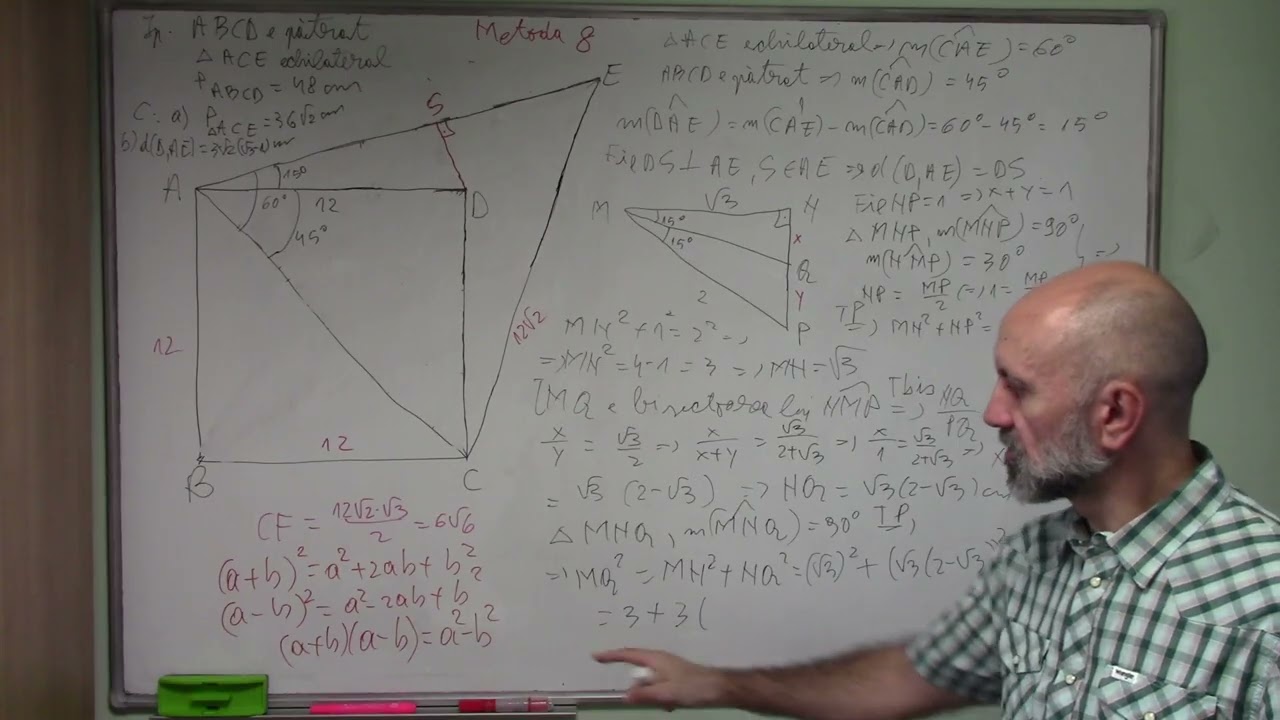 Ip. ABCD e pătrat
△ ACE echilateral
P ABCD = 48 cm
C: a) P △ACE = 36√2 cm
b) d(D,AE) = 3√2(√3-1) cm
Metoda 8
E
S
A
15°
60°
12
45°
D
12
12√2
12
B
C
CF = 12√2·√3/2 = 6√6
(a+b)² = a²+2ab+b²
(a-b)² = a²-2ab+b²
(a+b)(a-b) = a²-b²
△ACE echilateral => m(CAE) = 60°
ABCD e pătrat => m(CAD) = 45°
m(DAE) = m(CAE) - m(CAD) = 60° - 45° = 15°
Fie DS ⊥ AE, S ∈ AE => d(D,AE) = DS
M
√3
N
15°
15°
x
Q
2
y
P
Fie NP = 1 => x+y = 1
△ MNP, m(MNP) = 90°
m(NMP) = 30°
=>
NP = MP/2 (=) 1 = MP
TP => MN²+NP² =
MN²+1² = 2² =>
=> MN² = 4-1 = 3 => MN = √3
[MQ e bisectoarea lui NMP Tbis => NQ/PQ
x/y = √3/2 => x/(x+y) = √3/(2+√3) => x/1 = √3/(2+√3) =>
= √3 (2-√3) => NQ = √3(2-√3) cm
△ MNQ, m(MNQ) = 90° TP
=> MQ² = MN²+NQ² = (√3)² + (√3(2-√3))²
= 3+3(
wrangler